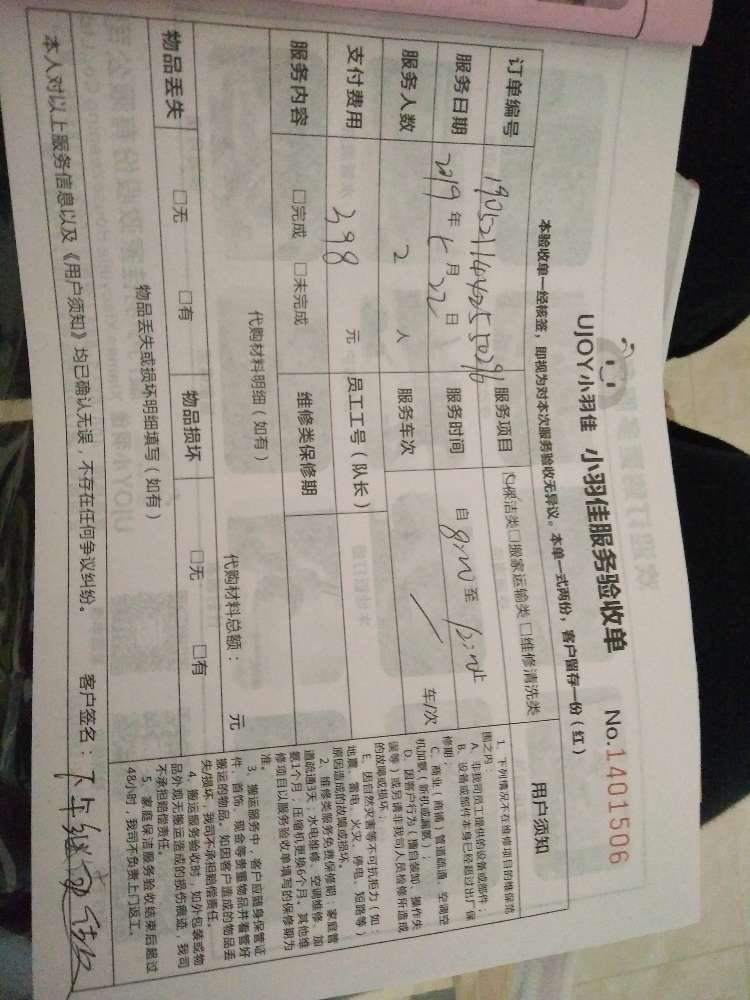 UJOY小羽佳 小羽佳服务验收单 No.1401506
本验收单一经核签，即视为对本次服务验收无异议。本单一式两份，客户留存一份（红）
订单编号 服务项目 ☑保洁类□搬家运输类□维修清洗类
服务日期 2019年5月22日 服务时间 自 8:00 至
服务人数 2 人 服务车次 / 车/次
支付费用 398 元 员工工号（队长）
服务内容 □完成 □未完成 维修类保修期
代购材料明细（如有） 代购材料总额： 元
物品丢失 □无 □有 物品损坏 □无 □有
物品丢失或损坏明细填写（如有）
本人对以上服务信息以及《用户须知》均已确认无误，不存在任何争议纠纷。 客户签名：下午继续
用户须知
1、下列情况不在维修项目的维保范
围之内：
A、非我司员工提供的设备或部件；
B、设备或部件本身已经超过出厂保
修期；
C、商业（商铺）管道疏通、空调空
机加氨（新机或漏氨）；
D、因客户行为（擅自装卸、操作失
误等）或另请非我司人员检修所造成
的故障或损坏；
E、因自然灾害等不可抗拒力（如：
地震、雷电、火灾、停电、短路等）
原因造成的故障或损坏。
2、维修类服务免费保修期：家庭管
道疏通3天；水电维修、空调维修、加
氨1个月；压缩机更换6个月。其他维
修项目以服务验收单填写的保修期为
准。
3、搬运服务中，客户应随身保管证
件、首饰、现金等贵重物品并看管好
搬运的物品。如因客户造成的物品丢
失/损坏，我司不承担赔偿责任。
4、搬运服务验收时，如外包装或物
品外观无搬运造成的损伤痕迹，我司
不承担赔偿责任。
5、家庭保洁服务验收结束后超过
48小时，我司不负责上门返工。